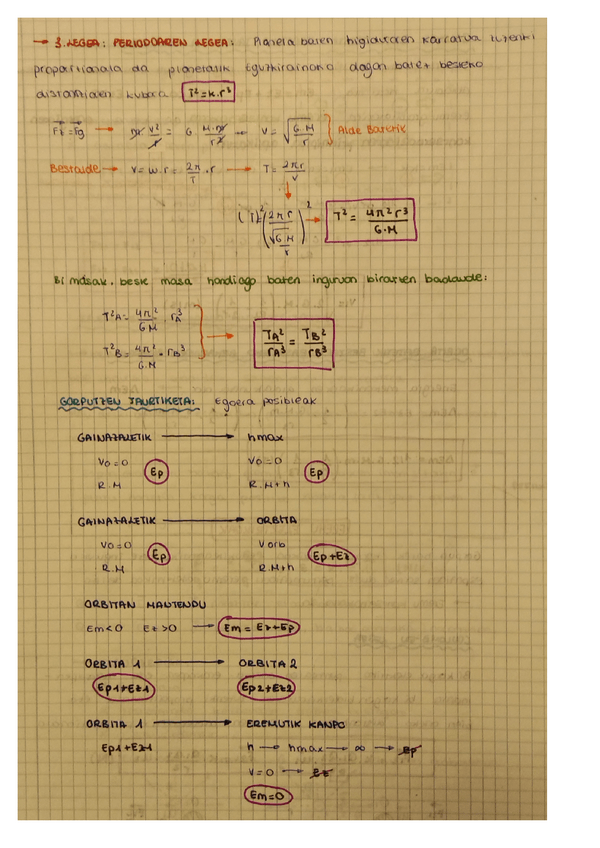 → 3. LEGEA: PERIODOAREN LEGEA: Planeta baten higiduraren karratua zuzenki
proportzionala da planetatik Eguzkirainoko dagoen batez besteko
distantziaren kuboa T² = k.r³
Fz = Fg → m v²/r = G M.m/r² → v = √(G.M/r) Alde Batetik
Bestalde → v = w.r = 2π/T . r → T = 2πr/v
(T)² = (2πr/√(G.M/r))² → T² = 4π²r³/G.M
Bi masak, beste masa handiago baten inguruan biratzen badaude:
T²A = 4π²/G.M . rA³
T²B = 4π²/G.M . rB³
TA²/rA³ = TB²/rB³
GORPUTZEN JAURTIKETA: Egoera posibleak
GAINAZALETIK → hmax
V0=0 Ep V0=0 Ep
R.M R.M+h
GAINAZALETIK → ORBITA
V0=0 Ep Vorb Ep+Ez
R.M R.M+h
ORBITAN MANTENDU
Em<0 Ez>0 → Em = Ez+Ep
ORBITA 1 → ORBITA 2
Ep1+Ez1 Ep2+Ez2
ORBITA 1 → EREMUTIK KANPO
Ep1+Ez1 h → hmax → ∞ → Ep
V=0 → Ez
Em=0